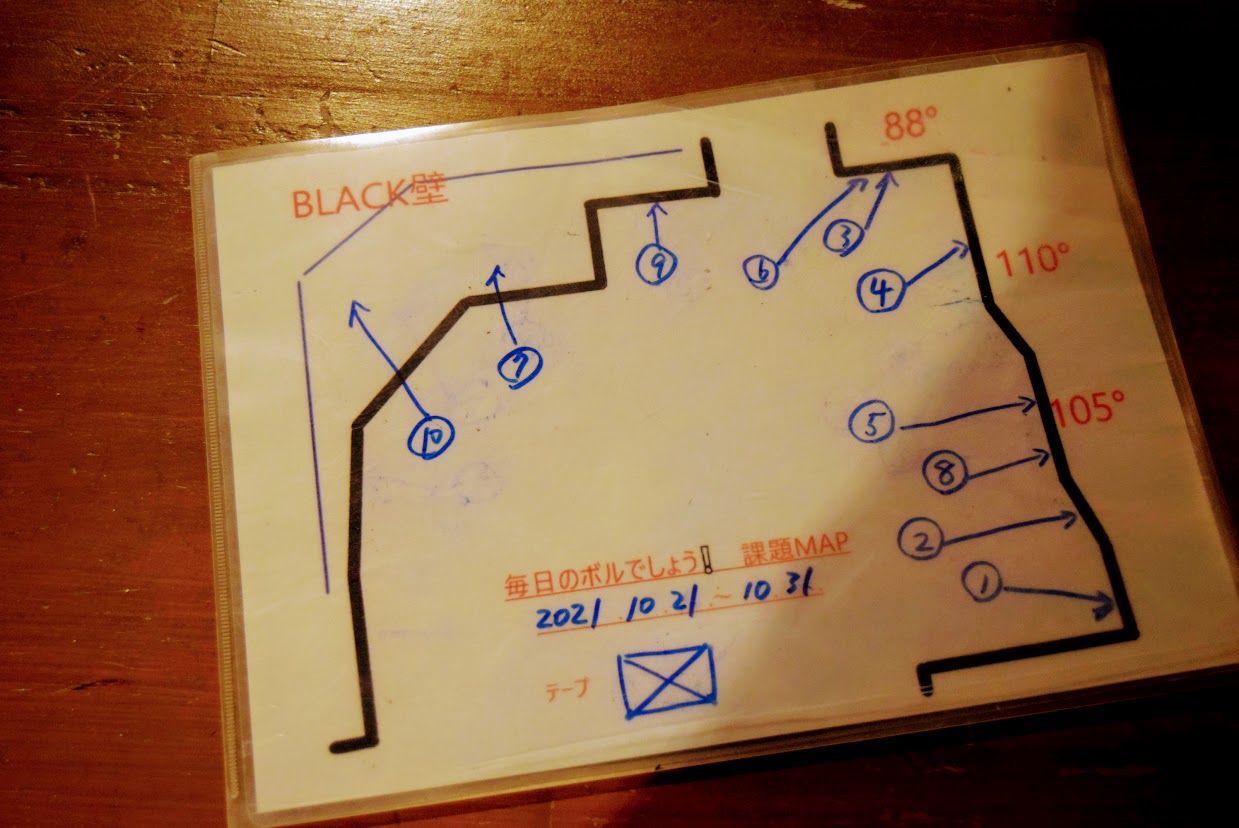 88°
BLACK壁
⑨
⑥
③
④
110°
⑦
⑩
⑤
105°
⑧
②
①
毎日のボルでしょう! 課題MAP
2021 10.21 ~ 10.31
テープ